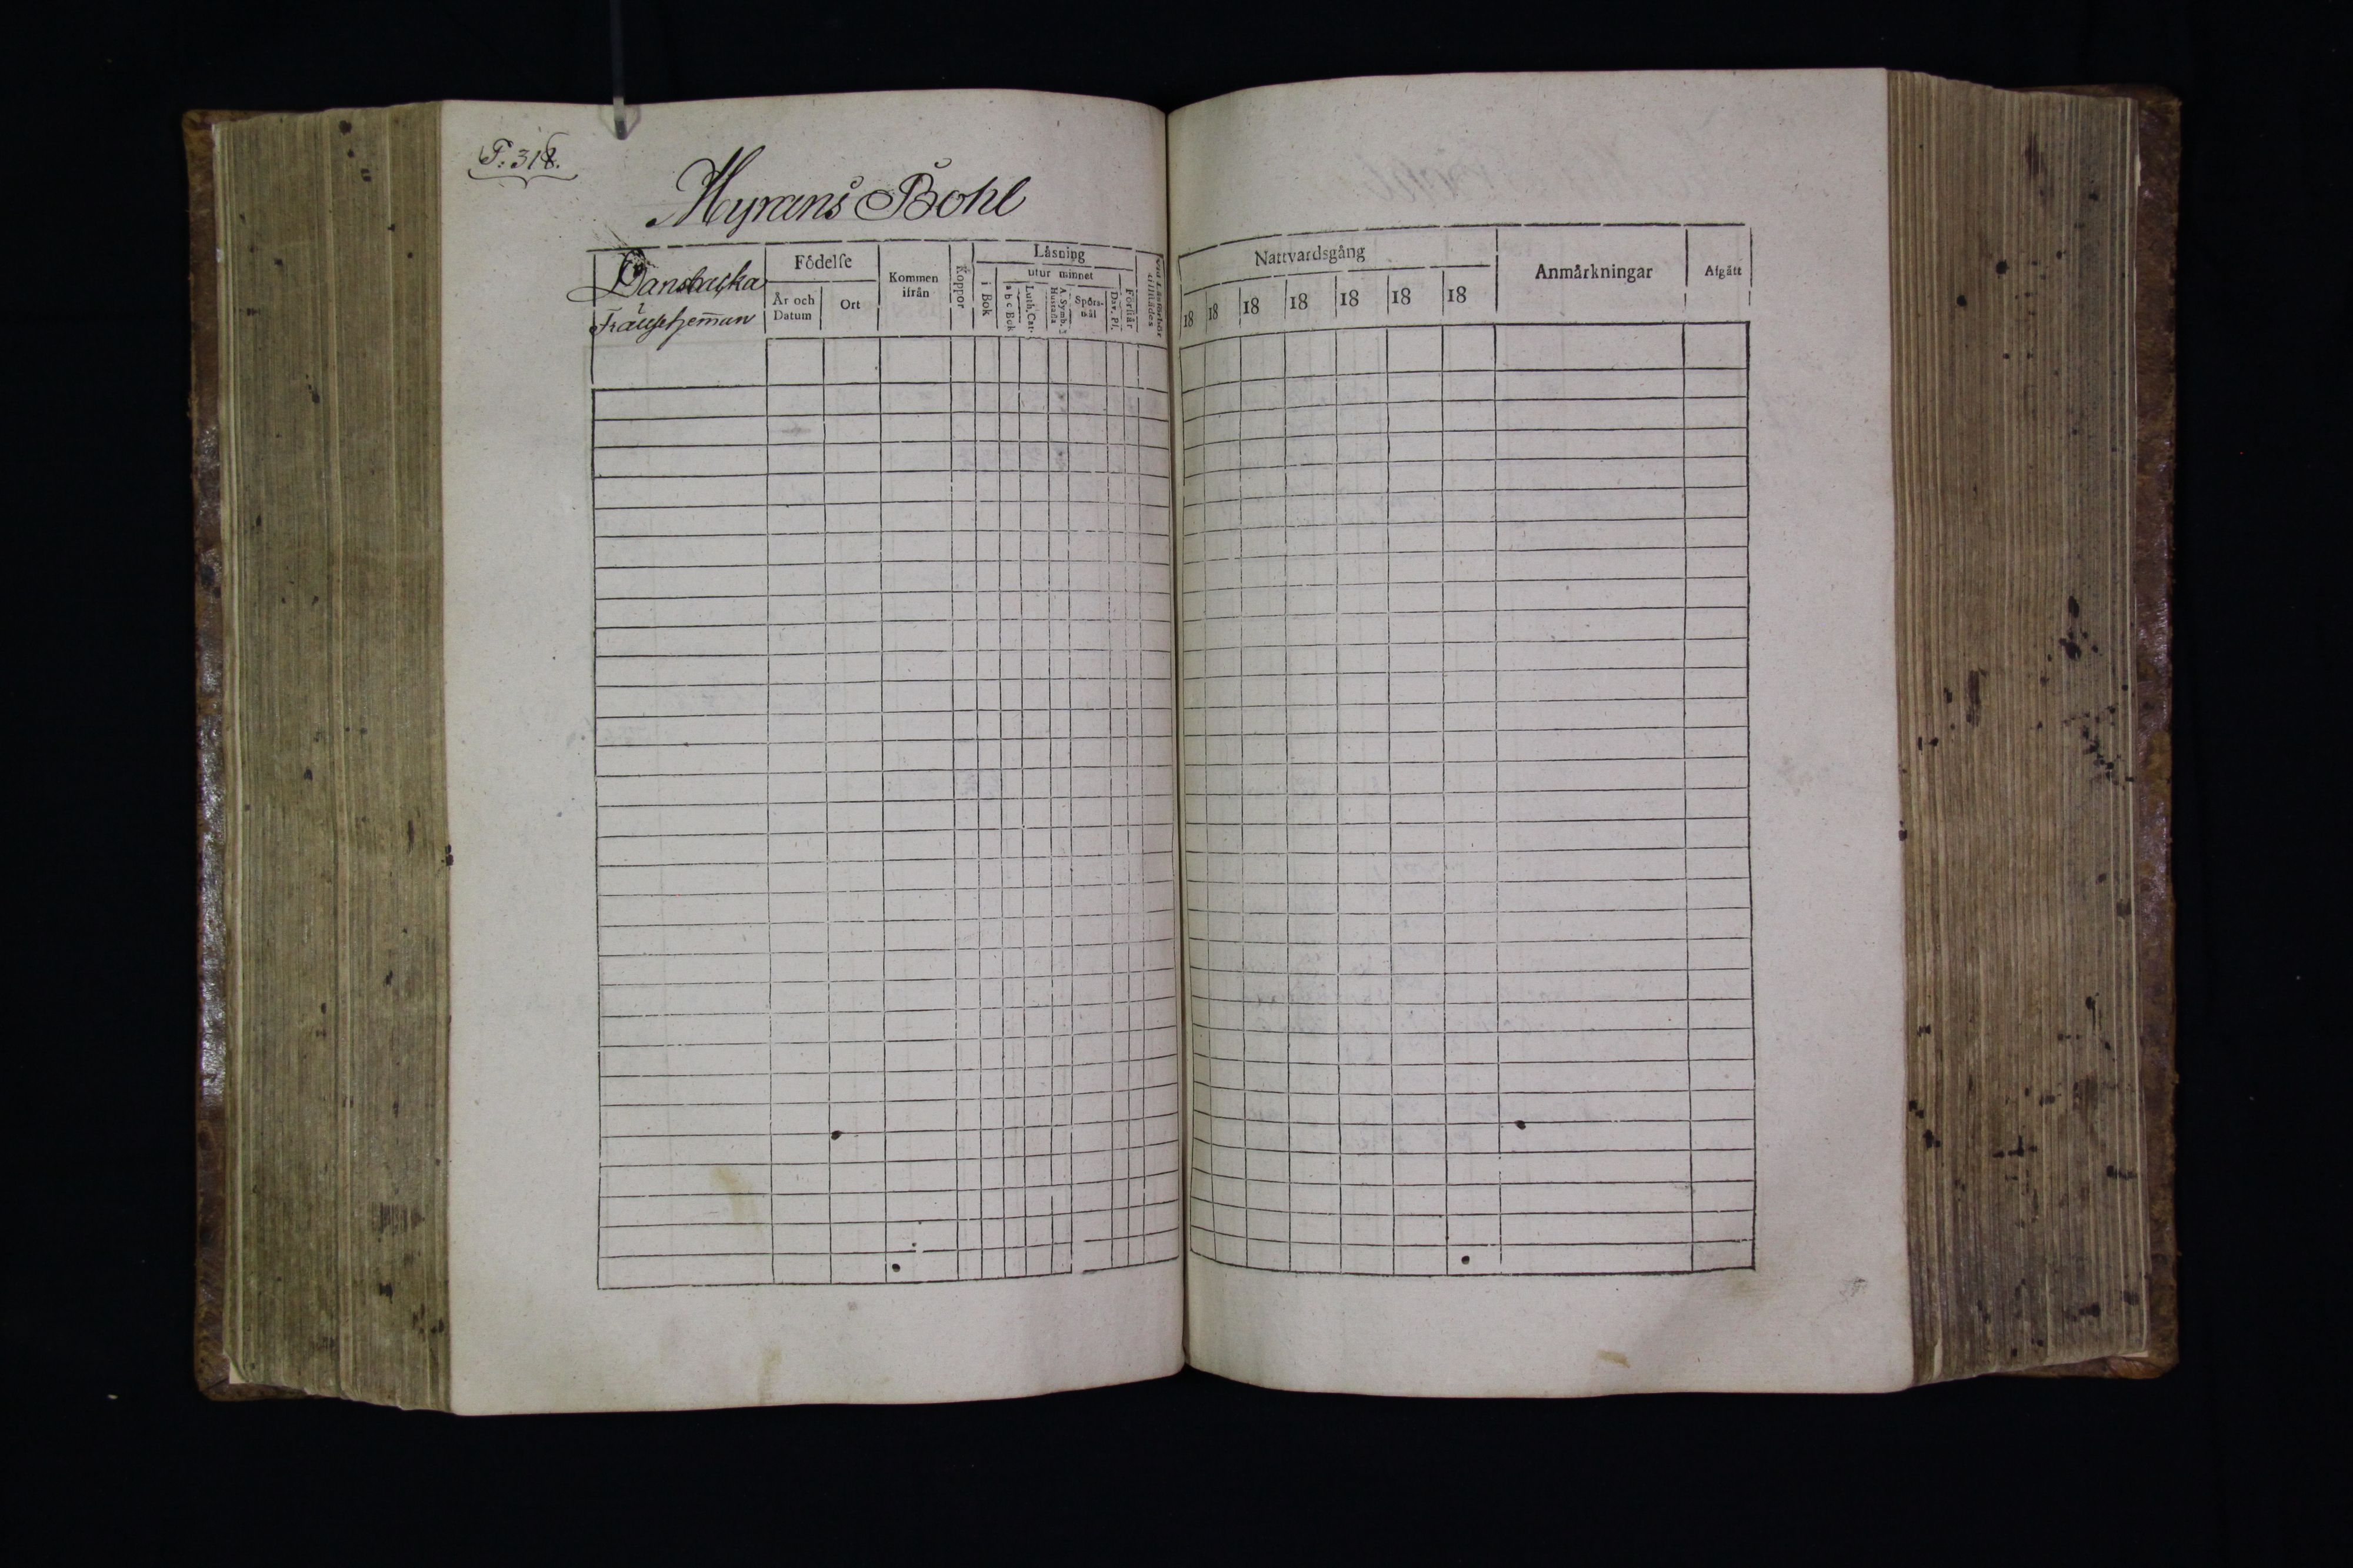 Myrans Bohl
Dansbacka
Födelse
Kommen
ifrån
Koppor
Läsning
utur minnet
År och
Datum
Ort
i Bok
a b c Bok
Luth. Cat.
A. Symb.
Hustafla
Spörs-
mål
Dav. Ps.
Förstår
Nattvardsgång
Anmärkningar
Afgått
18 18 18 18 18 18 18